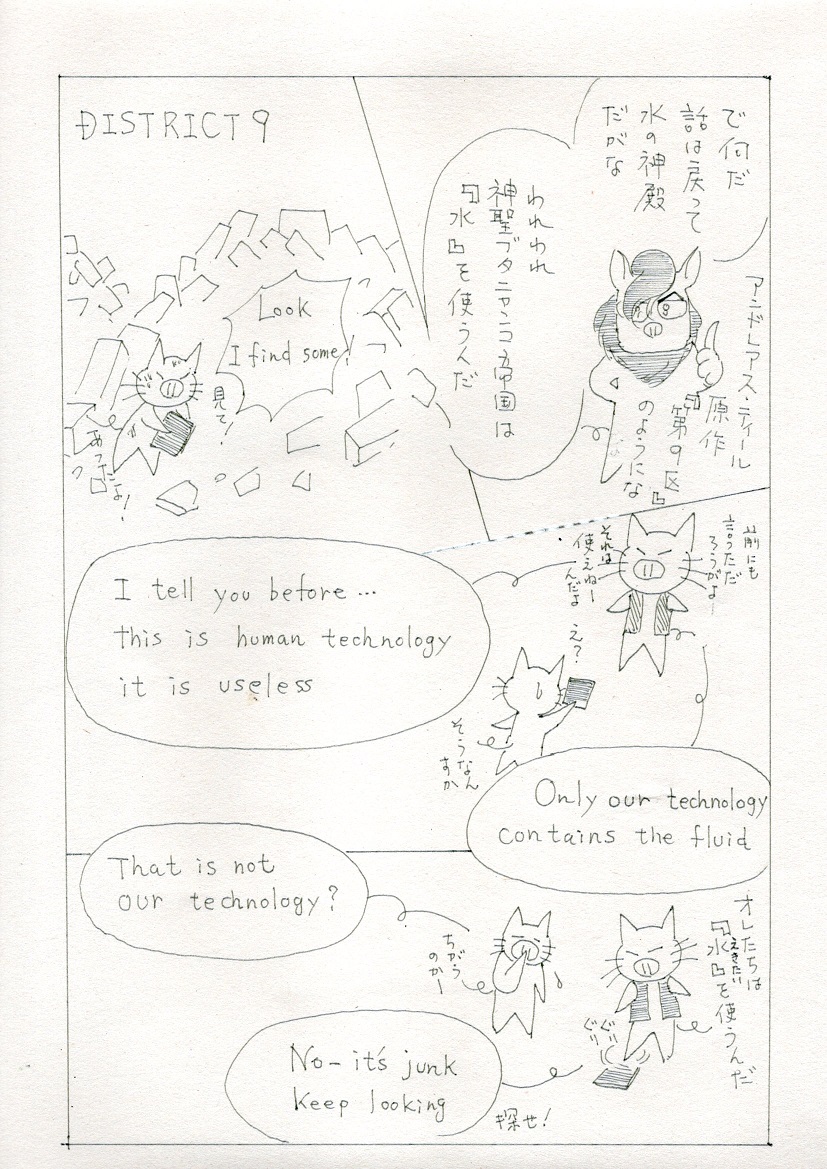 で何だ
話は戻って
水の神殿
だがな
われわれ
神聖ブタニャンコ帝国は
「水」を使うんだ
アンドレアス・ティール
原作
「第9区」
のようにな
DISTRICT 9
Look
I find some!
見て!
あったよ!
前にも
言っただ
ろうがよー
それは
使えねー
んだよ
I tell you before…
this is human technology
it is useless
え?
そうなん
すか
Only our technology
contains the fluid
That is not
our technology?
ちがう
のかー
オレたちは
えきたい
「水」を使うんだ
ぐい
ぐい
No– it's junk
Keep looking
探せ!